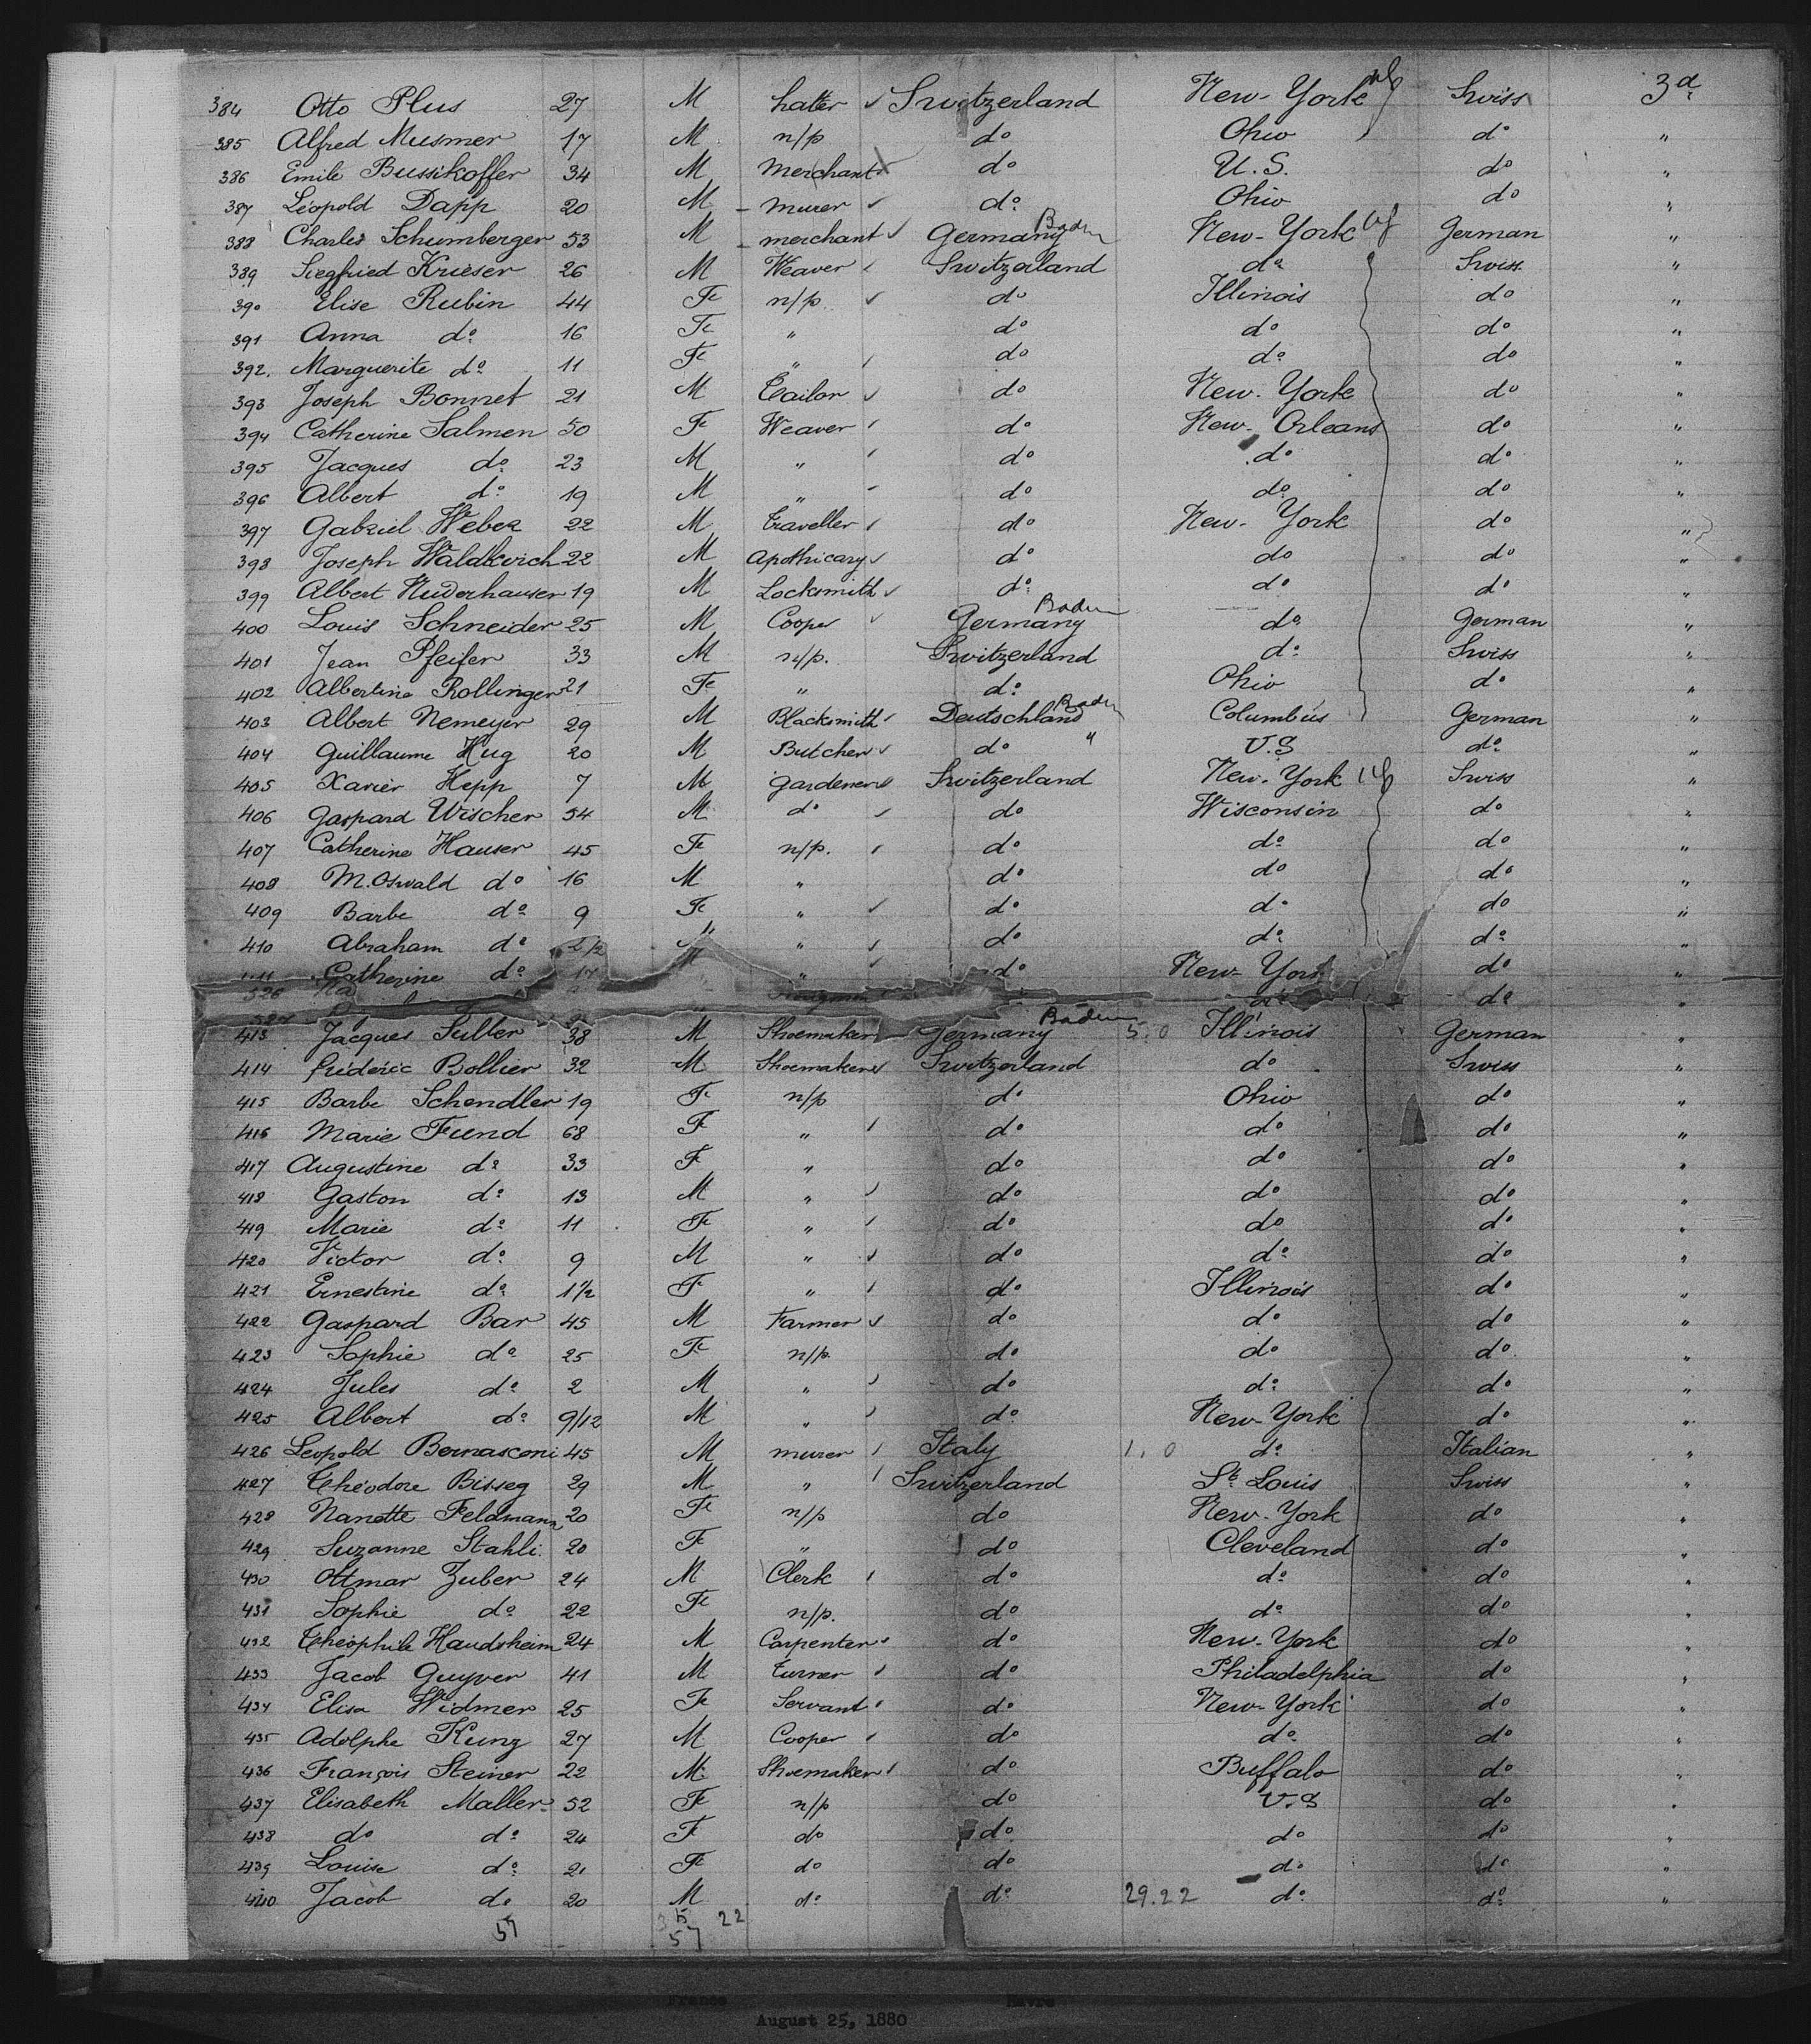 384 Otto Plus 27 M hatter Switzerland New-York Swiss 3d
385 Alfred Musmer 17 M n/p do Ohio do "
386 Emile Bussikoffer 34 M Merchant do U.S. do "
387 Léopold Dapp 20 M murer do Ohio do "
388 Charles Schumberger 53 M merchant Germany Baden New-York German "
389 Siegfried Krieser 26 M Weaver Switzerland do Swiss "
390 Elise Rubin 44 Fe n/p do Illinois do "
391 Anna do 16 Fe " do do do "
392. Marguerite do 11 Fe " do do do "
393 Joseph Bonnet 21 M Tailor do New-York do "
394 Catherine Salmen 50 Fe Weaver do New-Orleans do "
395 Jacques do 23 M " do do do "
396 Albert do 19 M " do do do "
397 Gabriel Weber 22 M traveller do New-York do "
398 Joseph Waldkirch 22 M Apothicary do do do "
399 Albert Niederhauser 19 M Locksmith do do do "
400 Louis Schneider 25 M Cooper Germany Baden do German "
401 Jean Pfeifer 33 M n/p. Switzerland do Swiss "
402 Albertine Rollinger 21 Fe " do Ohio do "
403 Albert Nemeyer 29 M Blacksmith Deutschland Baden Columbus German "
404 Guillaume Hug 20 M Butcher do " U.S do "
405 Xavier Hepp 7 M gardener Switzerland New-York Swiss "
406 Gaspard Wischer 54 M do do Wisconsin do "
407 Catherine Hauser 45 Fe n/p. do do do "
408 M. Oswald do 16 M " do do do "
409 Barbe do 9 Fe " do do do "
410 Abraham do M " do do do "
Catherine do 17 " do New-York do "
526 do "
413 Jacques Sutter 38 M Shoemaker Germany Baden 5.0 Illinois German "
414 Fréderic Bollier 32 M Shoemaker Switzerland do Swiss "
415 Barbe Schendler 19 Fe n/p do Ohio do "
416 Marie Fund 68 F " do do do "
417 Augustine do 33 F " do do do "
418 Gaston do 13 M " do do do "
419 Marie do 11 Fe " do do do "
420 Victor do 9 M " do do do "
421 Ernestine do 1 1/2 F " do Illinois do "
422 Gaspard Bar 45 M Farmer do do do "
423 Sophie do 25 Fe n/p. do do do "
424 Jules do 2 M " do do do "
425 Albert do 9/12 M " do New-York do "
426 Leopold Bernasconi 45 M murer Italy 1.0 do Italian "
427 Théodore Bisseg 29 M " Switzerland St Louis Swiss "
428 Nanette Feldmann 20 Fe n/p do New-York do "
429 Suzanne Stahli 20 F " do Cleveland do "
430 Ottmar Zuber 24 M Clerk do do do "
431 Sophie do 22 Fe n/p. do do do "
432 Théophile Handsheim 24 M Carpenter do New-York do "
433 Jacob Guyver 41 M turner do Philadelphia do "
434 Elisa Widmer 25 Fe Servant do New-York do "
435 Adolphe Kunz 27 M Cooper do do do "
436 François Steiner 22 M Shoemaker do Buffalo do "
437 Elisabeth Maller 52 Fe n/p do U.S do "
438 do do 24 F do do do do "
439 Louise do 21 Fe do do do do "
440 Jacob do 20 M do do 29.22 do do "
57 35 22
57
France Havre
August 25, 1880